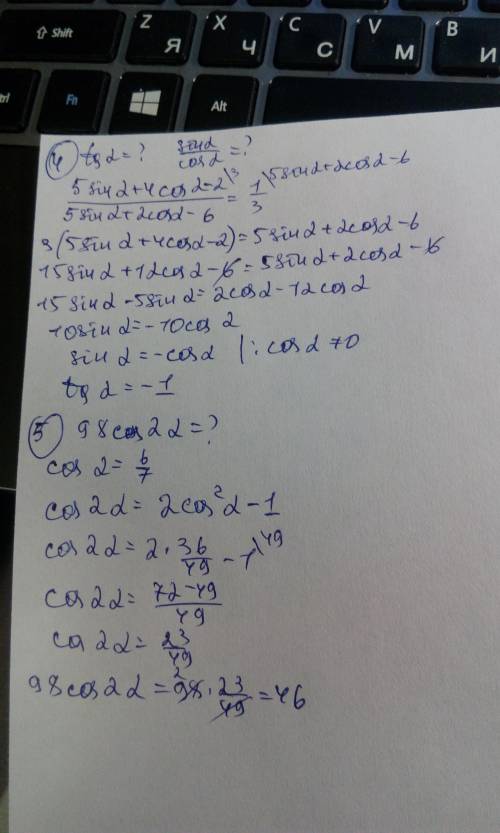 Shift
Z Я
X Ч
C С
V М
B И
Fn
Alt
4 tg α = ? sin α / cos α = ?
(5 sin α + 4 cos α − 2)\3 / (5 sin α + 2 cos α − 6) = 1/3 \5 sin α + 2 cos α − 6
3(5 sin α + 4 cos α − 2) = 5 sin α + 2 cos α − 6
15 sin α + 12 cos α − 6 = 5 sin α + 2 cos α − 6
15 sin α − 5 sin α = 2 cos α − 12 cos α
10 sin α = −10 cos α
sin α = −cos α | : cos α ≠ 0
tg α = −1
5 98 cos 2α = ?
cos α = 6/7
cos 2α = 2cos² α − 1
cos 2α = 2 · 36/49 − 1\49
cos 2α = (72 − 49)/49
cos 2α = 23/49
98 cos 2α = 98 2 · 23/49 = 46